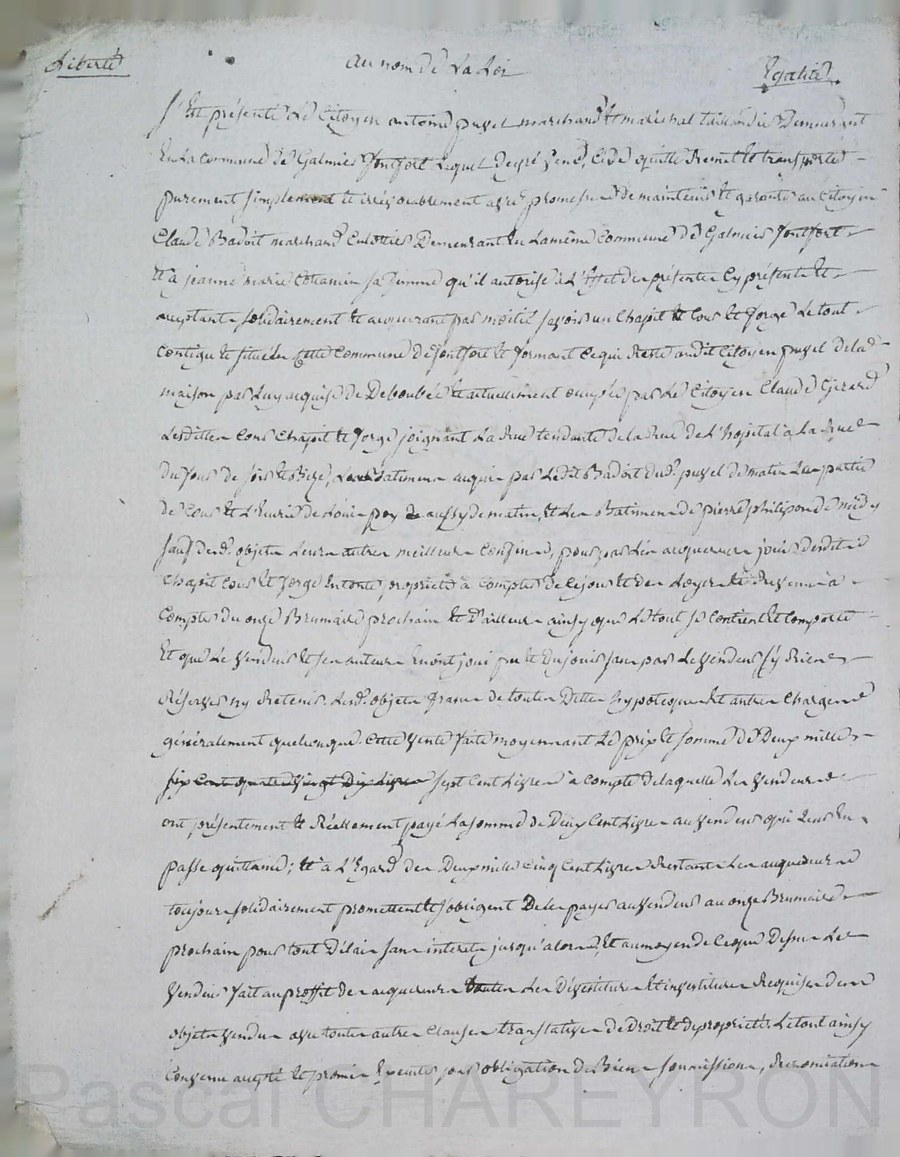 Liberté au nom de La Loi Egalité
S'est présenté le Citoyen antoine puzel marchand et maréchal taillandier Demeurant
En La commune de Galmier fontfort Lequel De gré vend, cède quitte Remet et transporte
purement simplement et irrévocablement avec promesse de maintenir et garantir au Citoyen
Claude Badoit marchand Demeurant En La même Commune de Galmier fontfort
Et à jeanne marie sa femme qu'il autorise à L'Effet des présentes Cy présente et
acceptante solidairement et acquerant par moitié savoir un Chapit et Cour et forge Le tout
contigu et situé en cette Commune de fontfort et formant Ce qui Reste audit Citoyen puzel de la
maison par Luy acquise de Deboubée et actuellement occupée par Le Citoyen Claude Gerard
Lesdittes Cour Chapit et forge joignant La Rue tendante de la Rue de L'hopital à La
Du jour de soir et Bize, Les Batimens acquis par Ledit Badoit dud. puzel de matin Les partie
de Cour et L'Ecurie de Louis aussy de matin, et Les Batimens de pierre philipon de midy
sauf desd. objets Leurs autres meilleurs Confins, pour par Les acquereurs jouir desdits
Chapit Cour et forge En toute propriété à Compter de Ce jour et des Loyers et Revenus à
Compter du onze Brumaire prochain Et D'ailleurs ainsy que Le tout se Contient et Comporte
Et que Le vendeur et ses auteurs En ont joui pu et Du jouir sans par Le vendeur s'y Rien
Réserver ny Retenir. Lesd. objets francs de toutes Dettes hypoteques et autres Charges
généralement quelconques. Cette vente faite moyennant Le prix et somme de Deux mille
six Cent quatre vingt Dix Livres sept Cent Livres à compte de laquelle Les vendeurs
ont présentement et Réellement payé La somme de Deux Cent Livres au vendeur qui Leur En
passe quittance; Et à L'Egard des Deux mille Cinq Cent Livres Restants Les acquereurs
toujours solidairement promettent et s'obligent De les payer au vendeur au onze Brumaire
prochain pour tout Délai sans interets jusqu'alors, Et au moyen de Ce que Dessus Le
vendeur fait au proffit des acquereurs toutes Les Dévestitures et investitures Requises desd.
objets vendus avec toutes autres Clauses translatives de Droit et de propriété. Le tout ainsy
Convenu accepté et promis Executer par obligation de Biens soumissions, Renonciations
Pascal CHAREYRON